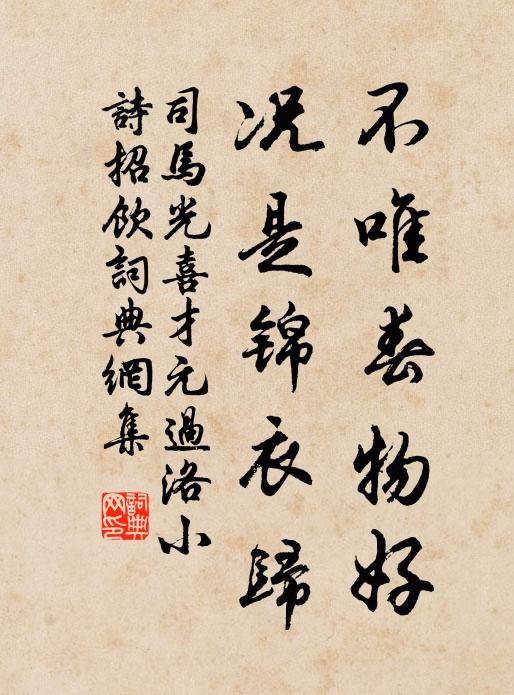 不唯春物好
况是锦衣歸
司馬光喜才元過洛小
詩招飲詞典網集
詞典
网印